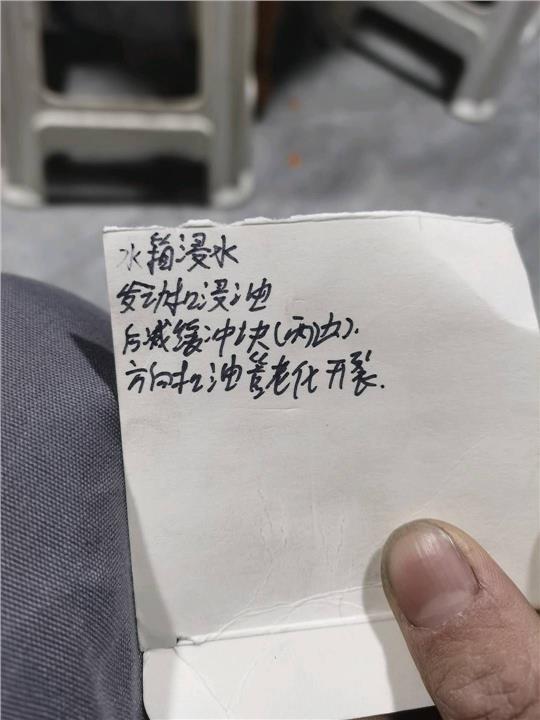 水箱浸水
发动机浸油
后减缓冲块(两边).
方向机油管老化开裂.